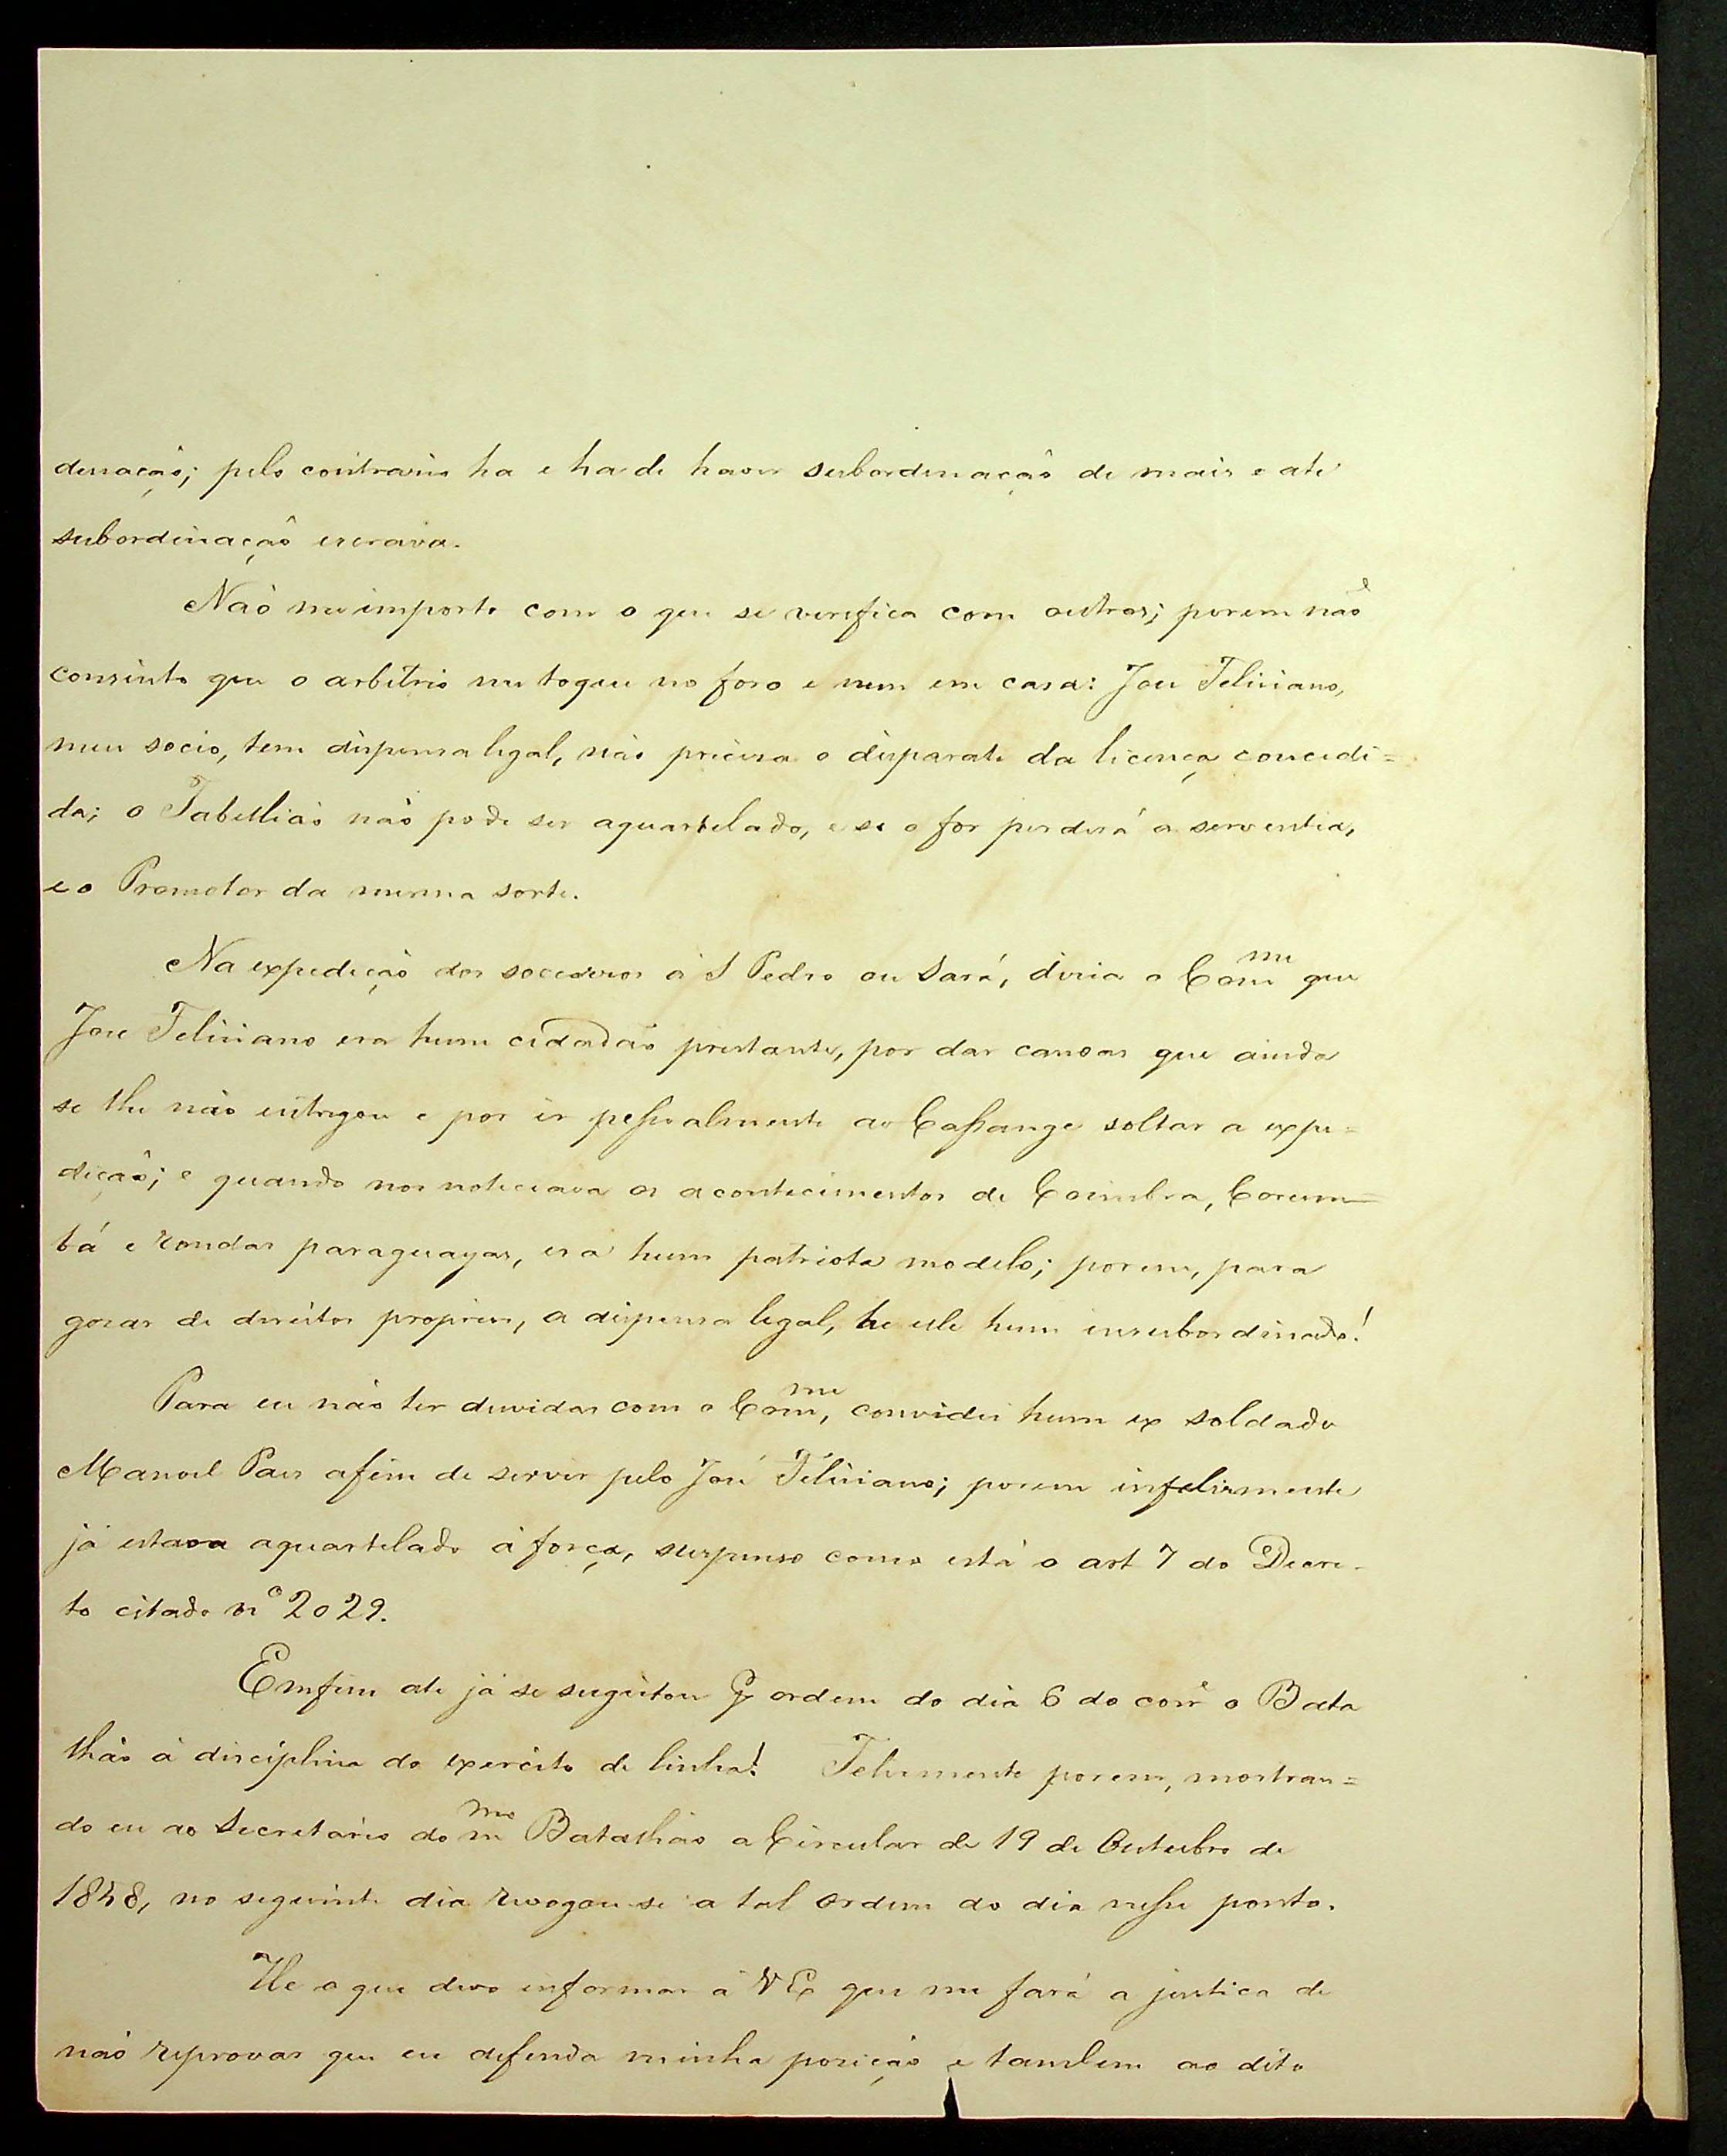 denação; pelo contrario ha e ha de haver subordenação de mais e até
subordinação escrava.
Não me importo com o que se verifica com outros; porem não
consinto que o arbitrio me toque no foro e nem em casa: José Feliciano,
meu socio, tem dispensa legal, não precisa o disparate da licença concedi=
da; o Tabellião não pode ser aquartelado, e se o for perderá a serventia,
e o Promotor da mesma sorte.
Na expedição dos socorros á S Pedro ou Sará, disia o Comme que
José Feliciano era hum cidadão prestante, por dar canoas que ainda
se lhe não entregou e por ir pessoalmente ao Cassange soltar a expe=
dição; e quando nos noticiava os acontecimentos de Coimbra, Corum=
bá e rondas paraguayas, era hum patriota modelo; porem, para
gosar de direitos proprios, a dispensa legal, he elle hum insubordinado!
Para eu não ter duvidas com o Comme, convidei hum ex soldado
Manoel Paes afim de servir pelo José Feliciano; porem infelismente
já estava aquartelado á força, suspenso como está o art 7 do Decre-
to citado nº 2029.
Emfim até já se sugeitou p ordem do dia 6 do corr o Bata
lhão á disciplina do exercito de linha! Felismente porem, mostran=
do eu ao Secretario do mmo Batalhão a Circular de 19 de Outubro de
1848, no seguinte dia revogou-se a tal ordem do dia nesse ponto.
He o que devo informar á V Ex que me fará a justica de
não reprovar que eu defenda minha posição e tambem ao dito